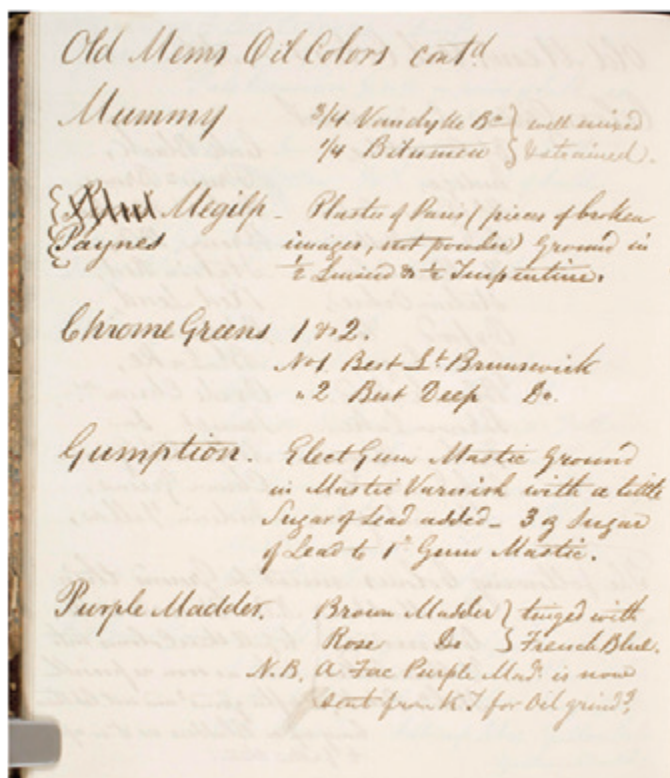 Old Mems Oil Colors contd
Mummy 3/4 Vandyke Bn } well mixed
1/4 Bitumen } & strained.
Megilp - Plaster of Paris (pieces of broken
Paynes images, not powder) Ground in
1/2 Linseed & 1/2 Turpentine.
Chrome Greens 1 & 2.
No 1 Best Lt Brunswick
" 2 Best Deep Do.
Gumption. Elect Gum Mastic Ground
in Mastic Varnish with a little
Sugar of Lead added - 3 Sugar
of Lead to 1 Gum Mastic.
Purple Madder. Brown Madder } tinged with
Rose Do } French Blue.
N.B. A Purple Mad. is now
sent from for Oil grindg.